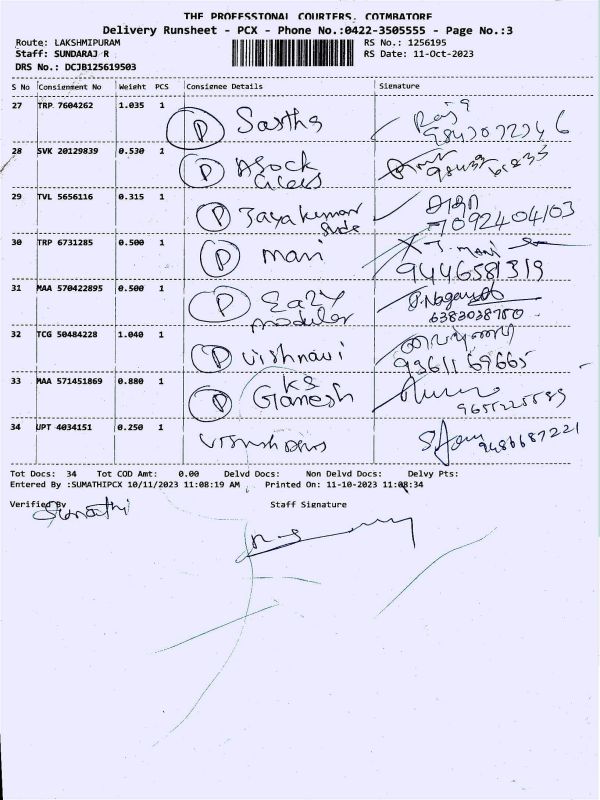 THE PROFESSIONAL COURIERS, COIMBATORE
Delivery Runsheet - PCX - Phone No.:0422-3505555 - Page No.:3
Route: LAKSHMIPURAM RS No.: 1256195
Staff: SUNDARAJ R RS Date: 11-Oct-2023
DRS No.: DCJB125619503
S No Consignment No Weight PCS Consignee Details Signature
27 TRP 7604262 1.035 1 P Sastha Raj
9843072346
28 SVK 20129839 0.530 1 P Asock
29 TVL 5656116 0.315 1 P Jayakumar
7092404103
30 TRP 6731285 0.500 1 P mani X J. mani
9446581319
31 MAA 570422895 0.500 1 P Eazy
modular
6383038750
32 TCG 50484228 1.040 1 P Vishnavi
9361169665
33 MAA 571451869 0.880 1 P KS
Ganesh
34 UPT 4034151 0.250 1
9486687221
Tot Docs: 34 Tot COD Amt: 0.00 Delvd Docs: Non Delvd Docs: Delvy Pts:
Entered By :SUMATHIPCX 10/11/2023 11:08:19 AM Printed On: 11-10-2023 11:08:34
Verified By Staff Signature
Sumathi